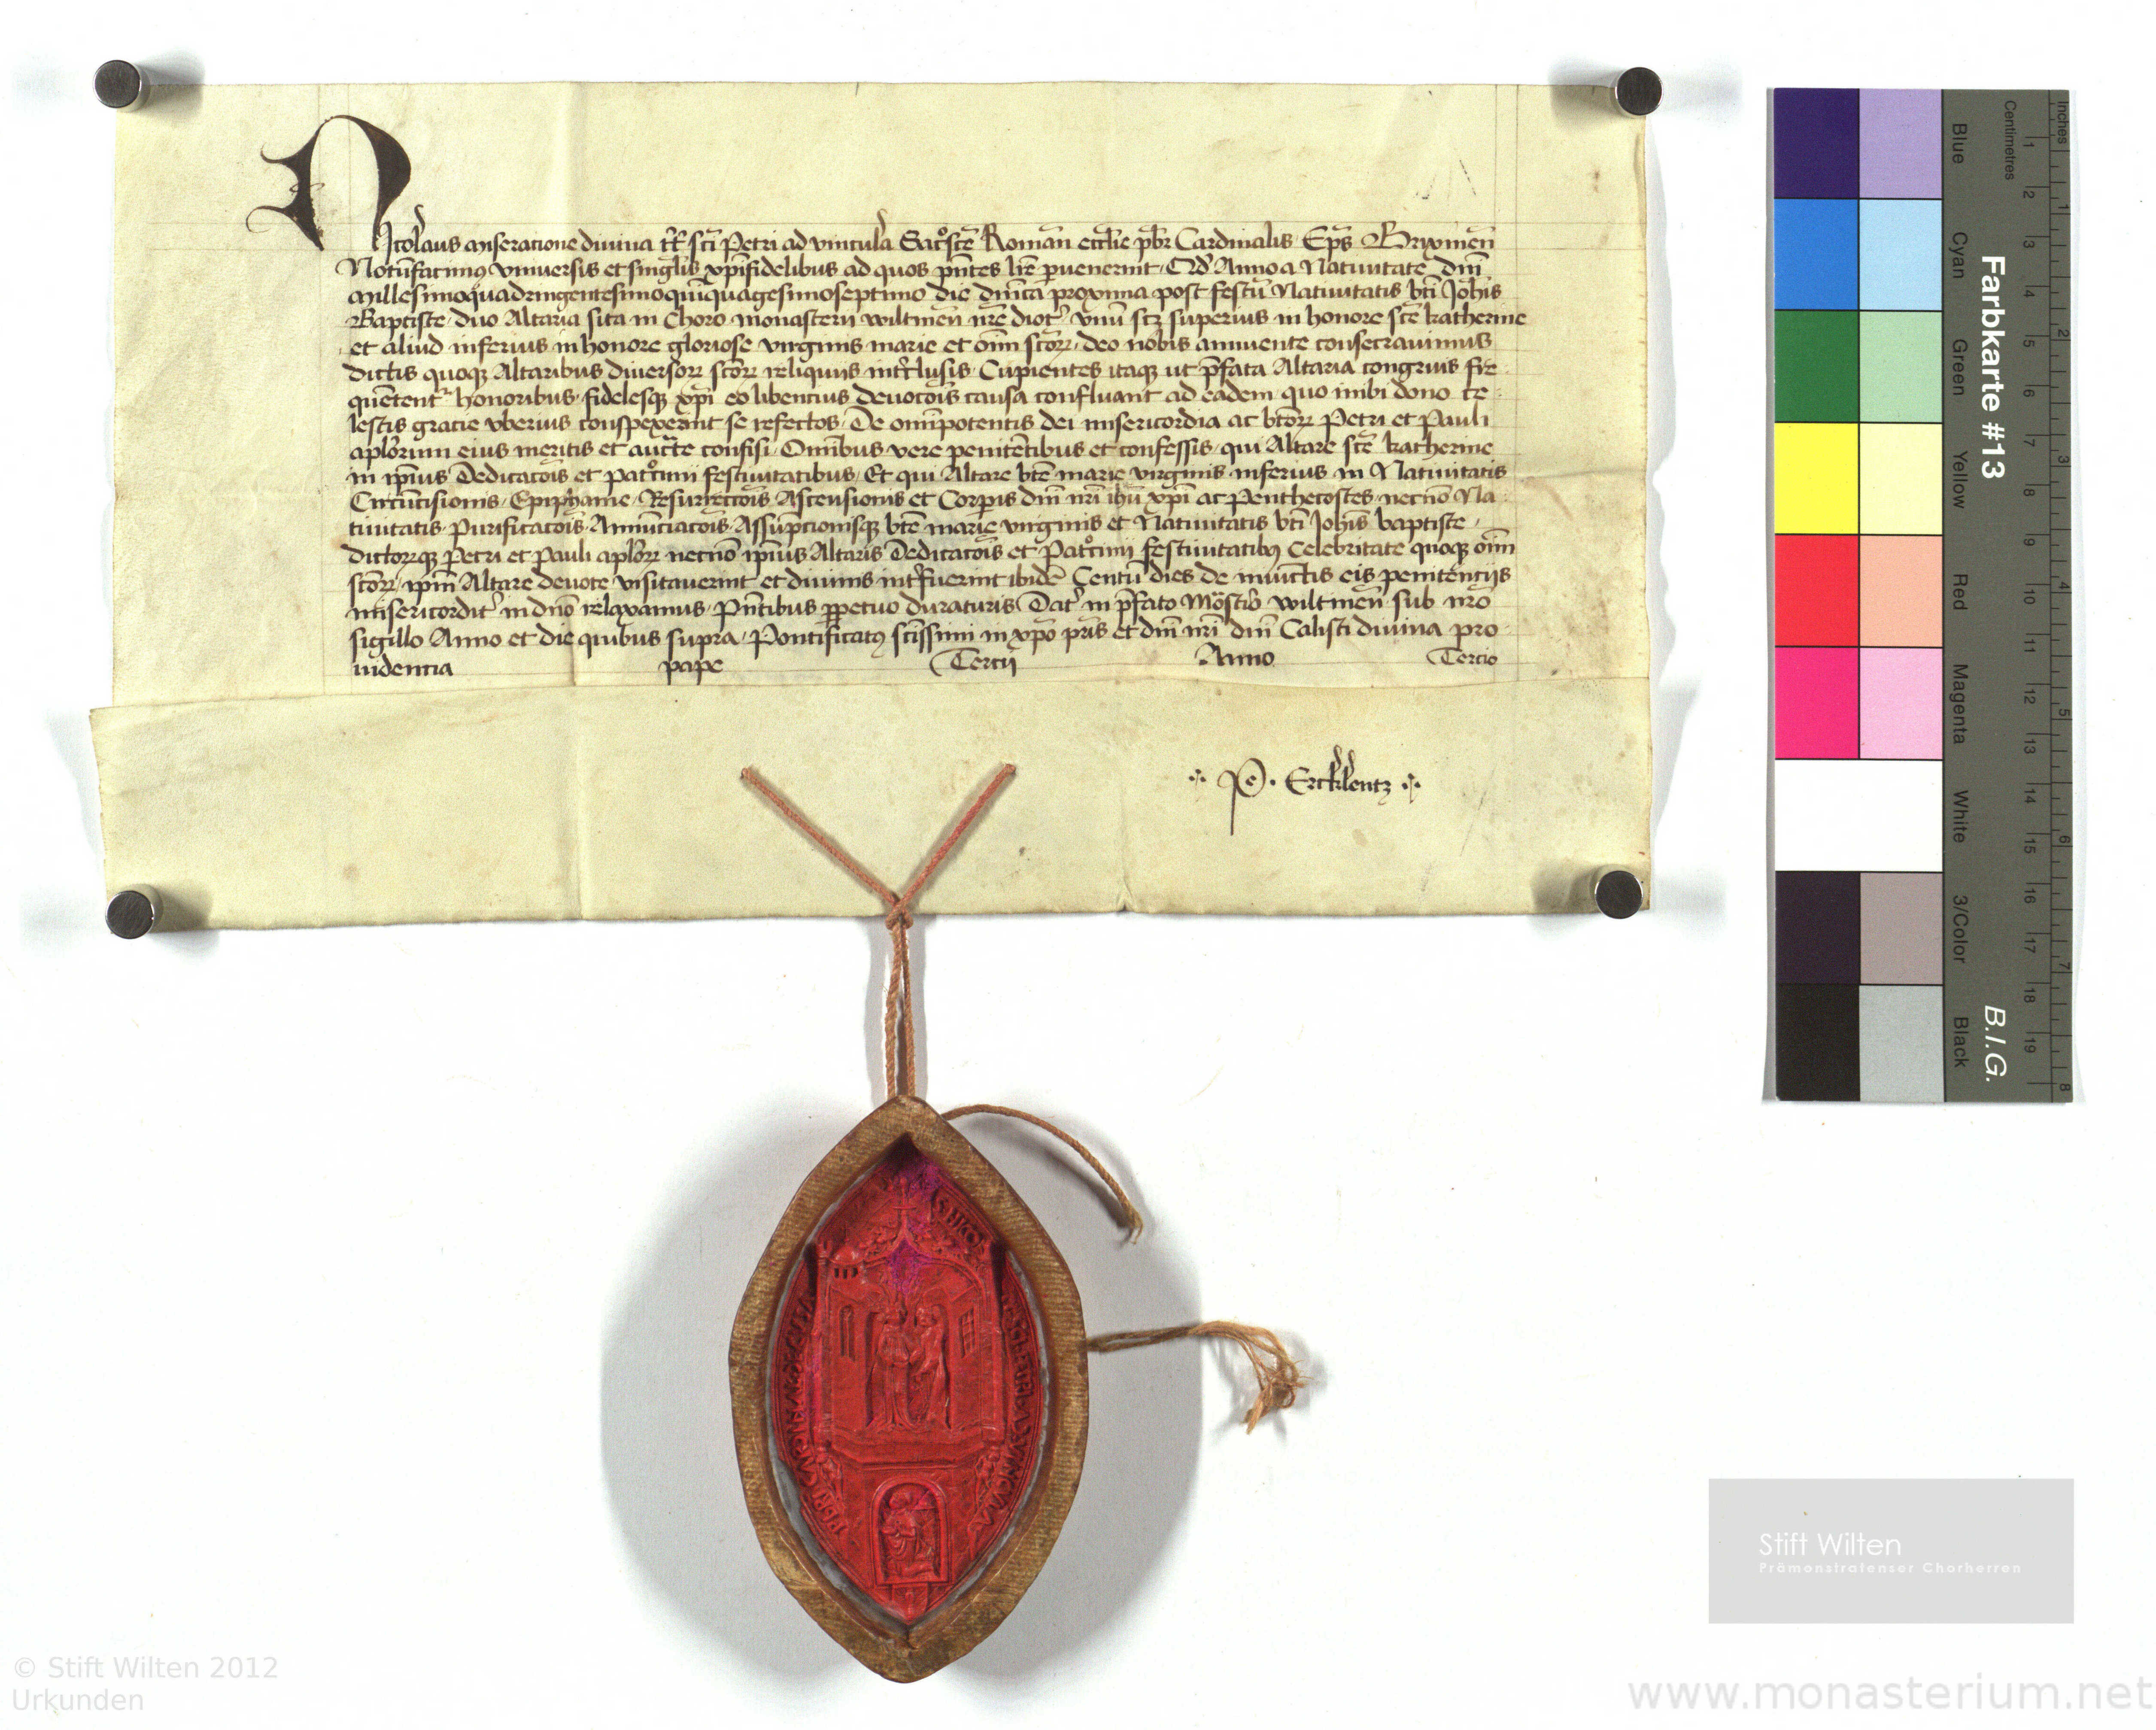 Nicolaus miseratione divina tt̄ scī Petri ad vincula Sacōscē Romañ eccl̄ie pb̄r Cardinalis Ep̄s Brixineñ
Notūfacimus vniuersis et singl̄is xp̄ifidelibus ad quos p̄ntes l̄re puenerint Qd̄ Anno a Natiuitate dn̄i
Millesimoquadringentesimoquīquagesimoseptimo die dn̄ica proxima post festū Natiuitatis bt̄i Joh̄is
Baptiste duo Altaria sita in Choro monasterii wiltineñ nr̄e dioc̄ vnū scz superius in honore scē katherine
et aliud inferius in honore gloriose virginis marie et om̄ scōrꝝ deo nobis annuente consecrauimus
dictis quoqꝫ Altaribus diuersorꝝ scōrꝝ reliquiis int̄clusis Cupientes itaqꝫ ut p̄fata Altaria congruis fre
quētent᷑ honoribus fidelesqꝫ xp̄i eo libencius deuocōis causa confluant ad eadem quo inibi dono ce
lestis gracie vberius conspexerint se refectos De om̄ipotentis dei misericordia ac bt̄orꝝ Petri et Pauli
apl̄orum eius meritis et auct̄te confisi Omībus vere penitētibus et confessis qui Altare scē katherine
in ip̄ius Dedicacōis et Pat̊cinii festiuitatibus Et qui Altare bt̄e marie virginis inferius in Natiuitatis
Circūcisionis Epiphanie Resurreccōis Ascensionis et Corpis dn̄i nr̄i ih̄u xp̄i ac Penthecostes necnō Na
tiuitatis Purificacōis Annūciacōis Assūpcionisqꝫ bt̄e marie virginis et Natiuitatis bt̄i Joh̄is baptiste
dictorꝝqꝫ Petri et Pauli apl̄orꝝ necnō ip̄ius Altaris Dedicacōis et Pat̊cinii festiuitatibꝰ Celebritate quoqꝫ om̄
scōrꝝ ip̄m Altare deuote visitauerint et diuinis int̄fuerint ibidē Centū dies de iniūctis eis penitenciis
misericordit᷑ in dn̄o relaxamus P̄ntibus ꝑpetuo duraturis Dat̄ in p̄fato Mōst̄io wiltineñ sub nr̄o
sigillo Anno et die quibus supra Pontificatꝰ sc̄issimi in xp̄o pr̄is et dn̄i nr̄i dn̄i Calisti diuina pro
uidentia pape Tercii Anno Tercio
Pe. Ercklentz
Farbkarte #13
B.I.G.
Inches
Centimetres
Blue Cyan Green Yellow Red Magenta White 3/Color Black
1 2 3 4 5 6 7 8 9 10 11 12 13 14 15 16 17 18 19
1 2 3 4 5 6 7 8
Stift Wilten
Prämonstratenser Chorherren
© Stift Wilten 2012
Urkunden
www.monasterium.net